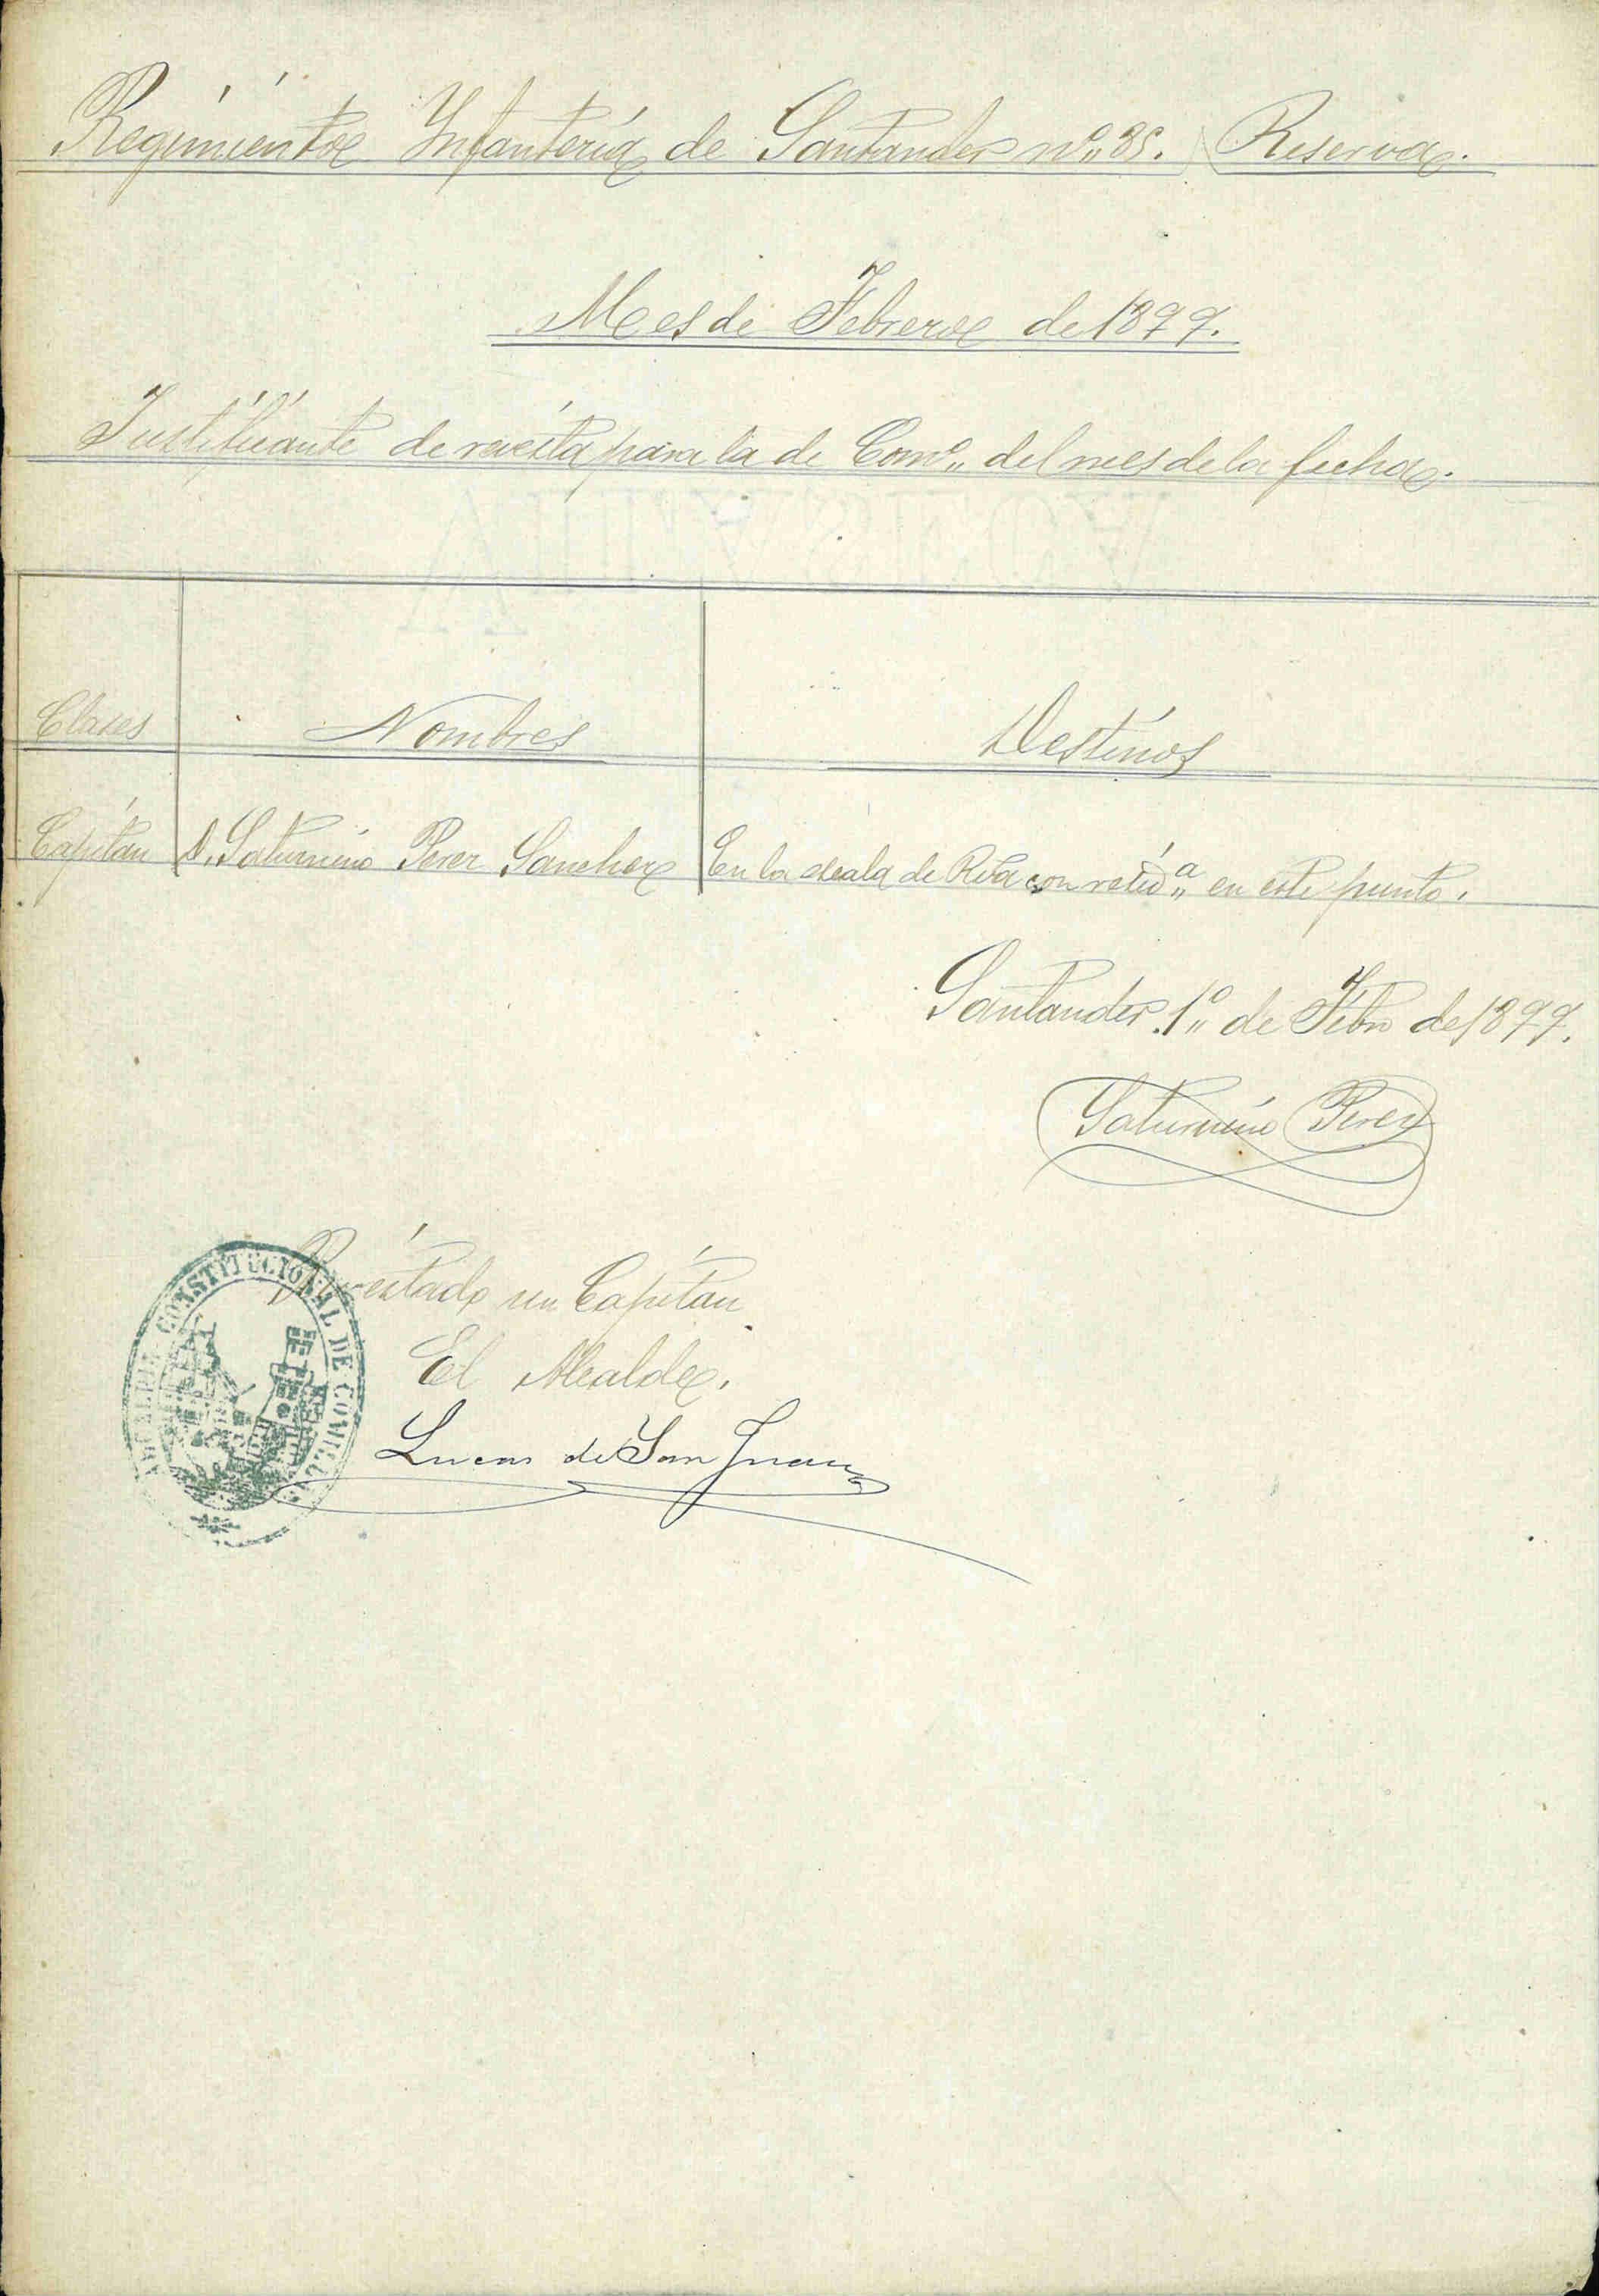 Regimiento Infantería de Santander nº 85. Reserva.
Mes de Febrero de 1899.
Justificante de revista para la de Comº del mes de la fecha.
Clases Nombres Destinos
Capitan D. Saturnino Perez Sanchez En la escala de Rva con residª en este punto.
Santander 1º de Febro de 1899.
Saturnino Perez
Revistado un Capitan
El Alcalde.
Lucas de San Juan
CONSTITUCIONAL DE COMILLAS